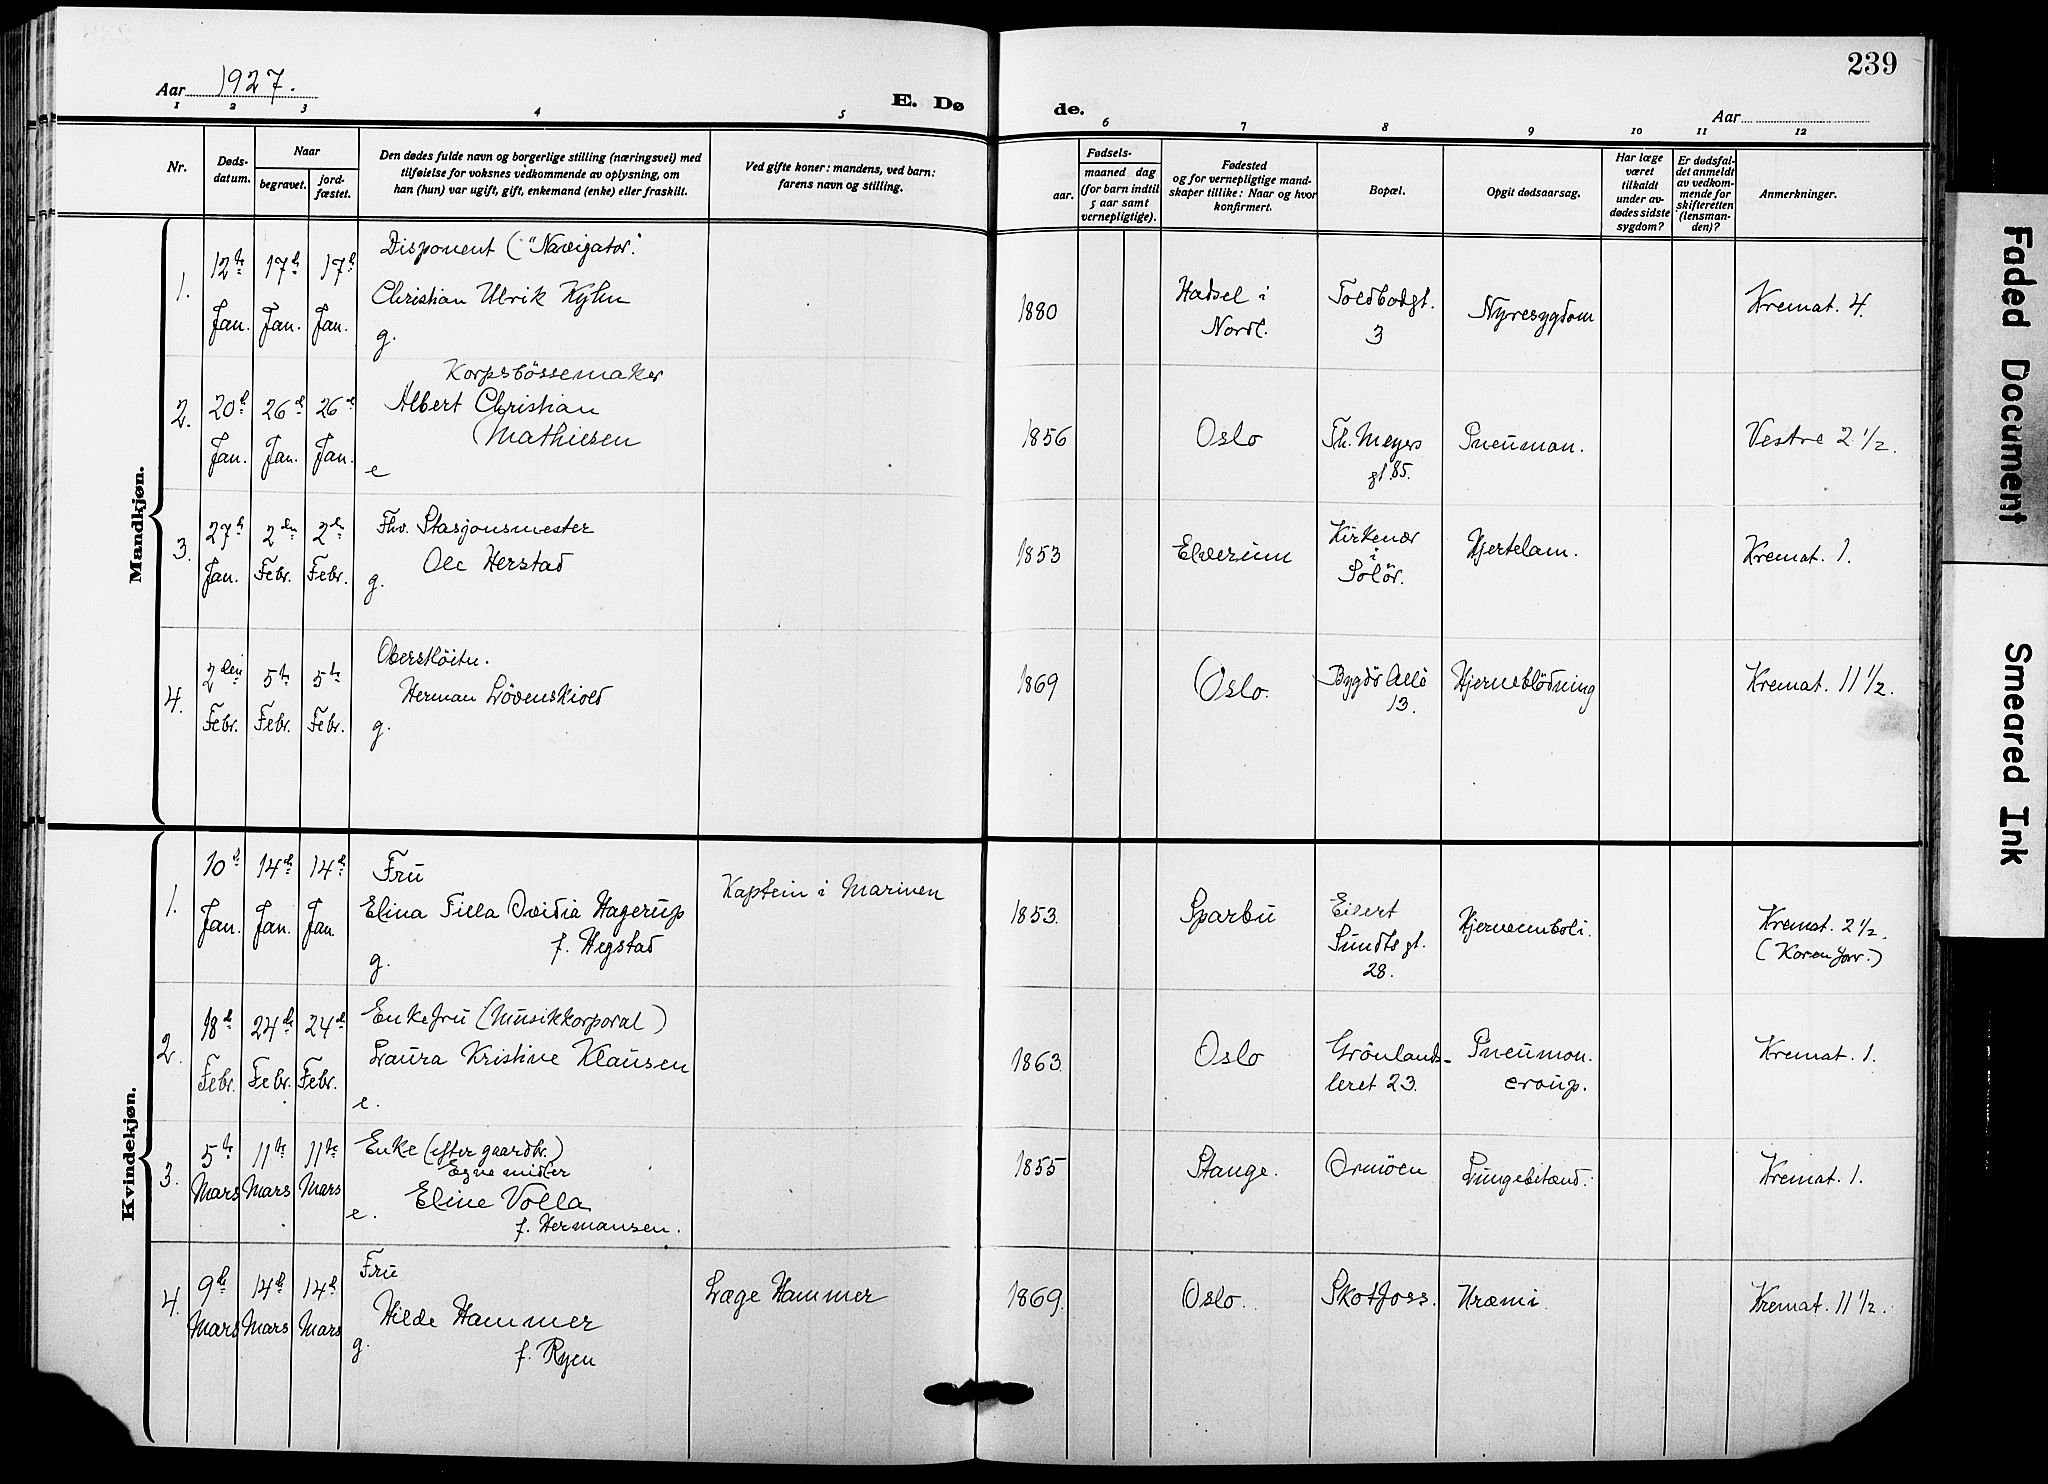 239
Aar 1927.
E. Døde.
Aar
1 2 3 4 5 6 7 8 9 10 11 12
Nr.
Døds-
datum.
Naar
begravet.
jord-
fæstet.
Den dødes fulde navn og borgerlige stilling (næringsvei) med
tilføielse for voksnes vedkommende av oplysning, om
han (hun) var ugift, gift, enkemand (enke) eller fraskilt.
Ved gifte koner: mandens, ved barn:
farens navn og stilling.
Fødsels-
aar.
maaned dag
(for barn indtil
5 aar samt
vernepligtige).
Fødested
og for vernepligtige mand-
skaper tillike: Naar og hvor
konfirmert.
Bopæl.
Opgit dødsaarsag.
Har læge
været
tilkaldt
under av-
dødes sidste
sygdom?
Er dødsfal-
det anmeldt
av vedkom-
mende for
skifteretten
(lensman-
den)?
Anmerkninger.
Mandkjøn.
1.
12te
Jan.
17de
Jan.
17de
Jan.
Disponent ("Navigator."
Christian Ulrik Kyhn
g.
1880
Hadsel i
Nordl.
Toldbodgt.
3
Nyresygdom
Kremat. 4.
2.
20de
Jan.
26de
Jan.
26de
Jan.
Korpsbössemaker
Albert Christian
Mathiesen
e
1856
Oslo
Th. Meyers
gt. 85.
Pneumon.
Vestre 2 1/2.
3.
27de
Jan.
2den
Febr.
2den
Febr.
Fhv. Stasjonsmester
Ole Herstad
g.
1853
Elverum
Kirkenær
i
Solör.
Hjertelam.
Kremat. 1.
4.
2den
Febr.
5te
Febr.
5te
Febr.
Oberstlöitn.
Herman Lövenskiold
g.
1869
Oslo.
Bygdö Allé
13.
Hjerneblödning
Kremat. 11 1/2.
Kvindekjøn.
1.
10de
Jan.
14de
Jan.
14de
Jan.
Fru
Elina Tilla Ovidia Hagerup
f. Hegstad
g.
Kaptein i Marinen
1853.
Sparbu
Eilert
Sundts gt.
28.
Hjerneemboli.
Kremat. 2 1/2.
2.
18de
Febr.
24de
Febr.
24de
Febr.
Enkefru (Musikkorporal)
Laura Kristine Klausen
e.
1863.
Oslo
Grönlands-
leret 23.
Pneumon.
croup.
Kremat. 1.
3.
5te
Mars
11te
Mars
11te
Mars
Enke (efter gaardbr.)
Egne midler
Eline Volla
e.
f. Hermansen.
1855
Stange.
Ormöen
Lungebetænd.
Kremat. 1.
4.
9de
Mars
14de
Mars
14de
Mars
Fru
Hilde Hammer
g.
f. Ryen
Læge Hammer
1869.
Oslo.
Skotfoss.
Uræmi.
Kremat. 11 1/2.
Faded Document
Smeared Ink